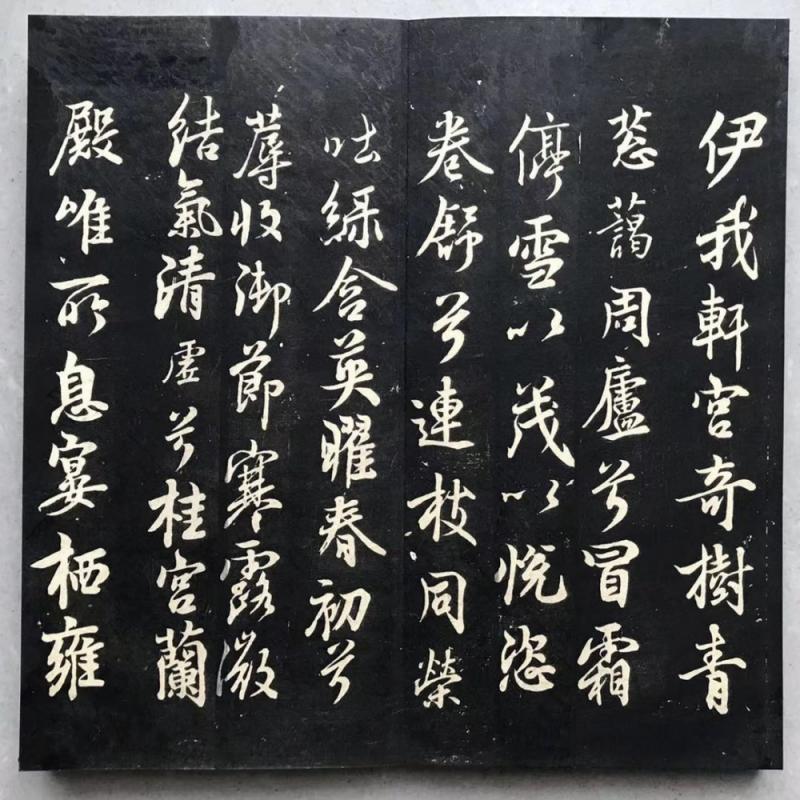 伊我軒宮奇樹青
葱藹周廬兮冒霜
停雪以茂以悅恣
卷舒兮連枝同榮
吐綠含英曜春初兮
蓐收御節寒露微
結氣清虛兮桂宮蘭
殿唯所息宴栖雍